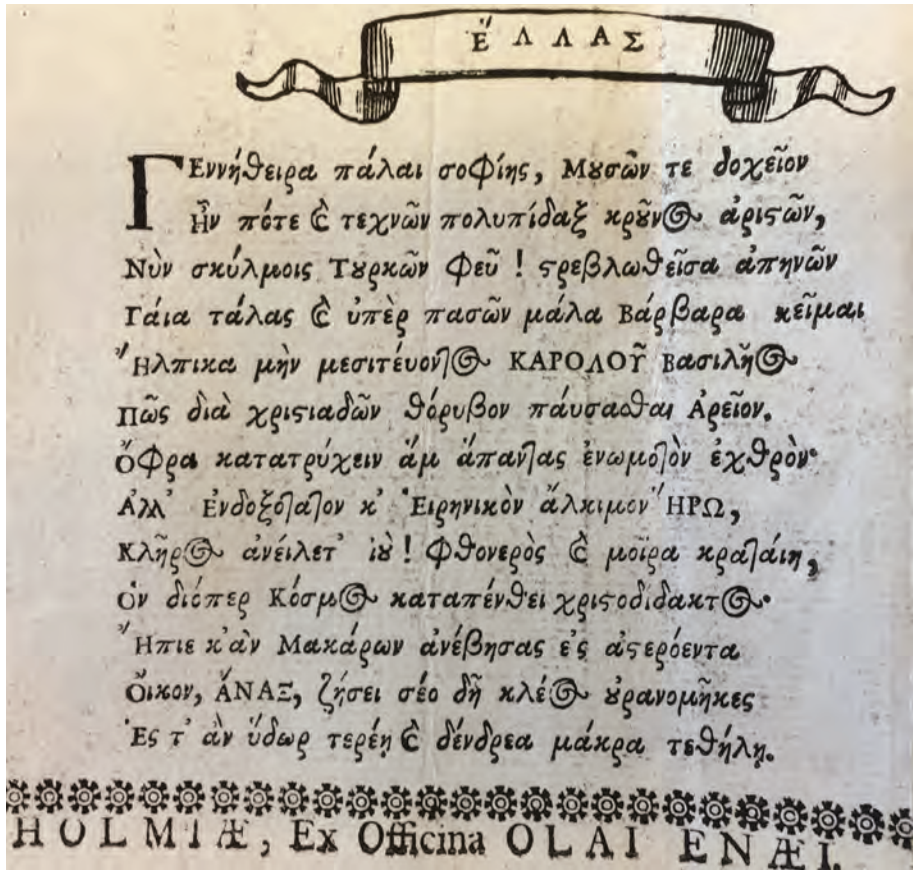 ἝΛΛΑΣ
ΓΕννήθειρα πάλαι σοφίης, Μȣσῶν τε δοχεῖον
Ἦν πότε ϗ τεχνῶν πολυπίδαξ κρȣ͂νος ἀρισῶν,
Νὺν σκύλμοις Τȣρκῶν φεῦ ! ϛρεβλωθεῖσα ἀπηνῶν
Γάια τάλας ϗ ὑπὲρ πασῶν μάλα Βάρβαρα κεῖμαι
Ἤλπικα μὴν μεσιτέυοντος ΚΑΡΟΛΟΥ͂ Βασιλῆος
Πῶς διὰ χριϛιαδῶν θόρυβον πάυσασθαι Ἀρεῖον.
Ὄφρα κατατρύχειν ἅμ ἅπαντας ἐνωμοτὸν ἐχθρὸν·
Ἀλλ' Ἐνδοξότατον κ' Ἐιρηνικὸν ἄλκιμον ἭΡΩ,
Κλῆρος ἀνέιλετ' ἰȣ̀ ! Φθονερὸς ϗ μοῖρα κρατάιη,
Ὁν διόπερ Κόσμος καταπένθει χριϛοδιδακτος·
Ἤπιε κ'ἀν Μακάρων ἀνέβησας ἐς ἀϛερόεντα
Ὄικον, ἌΝΑΞ, ζήσει σέο δῆ κλέος ȣ̓ρανομῆκες
Ἐς τ' ἀν ὕδωρ τερέῃ ϗ δένδρεα μάκρα τεθήλῃ.
HOLMIÆ, Ex Officina OLAI ENÆI.